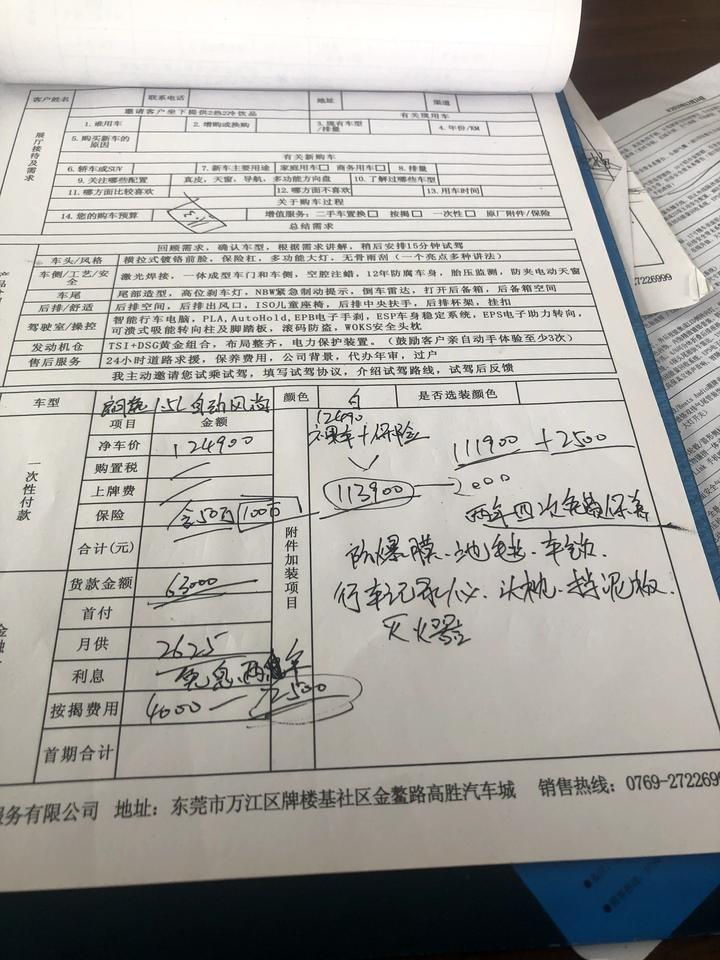 客户姓名 联系电话 地址 渠道
邀请客户坐下提供2热2冷饮品 有关现用车
展厅接待及需求
1. 谁用车 2. 增购或换购 3. 现有车型/排量 4. 年份/KM
5. 购买新车的原因
有关新购车
6. 轿车或SUV 7. 新车主要用途 家庭用车□ 商务用车□ 8. 排量
9. 关注哪些配置 真皮，天窗，导航，多功能方向盘 10. 了解过哪些车型
11. 哪方面比较喜欢 12. 哪方面不喜欢 13. 用车时间
关于购车过程
14. 您的购车预算 增值服务：二手车置换□ 按揭□ 一次性□ 原厂附件/保险
总结需求
回顾需求，确认车型，根据需求讲解，稍后安排15分钟试驾
车头/风格 横拉式镀铬前脸，保险杠，多功能大灯，无骨雨刮（一个亮点多种讲法）
车侧/工艺/安全 激光焊接，一体成型车门和车侧，空腔注蜡，12年防腐车身，胎压监测，防夹电动天窗
车尾 尾部造型，高位刹车灯，NBW紧急制动提示，倒车雷达，打开后备箱，后备箱空间
后排/舒适 后排空间，后排出风口，ISO儿童座椅，后排中央扶手，后排杯架，挂扣
驾驶室/操控 智能行车电脑，PLA,AutoHold,EPB电子手刹，ESP车身稳定系统，EPS电子助力转向，
可溃式吸能转向柱及脚踏板，滚码防盗，WOKS安全头枕
发动机仓 TSI+DSG黄金组合，布局整齐，电力保护装置。（鼓励客户亲自动手体验至少3次）
售后服务 24小时道路求援，保养费用，公司背景，代办年审，过户
我主动邀请您试乘试驾，填写试驾协议，介绍试驾路线，试驾后反馈
车型 朗逸1.5L自动风尚 颜色 白 是否选装颜色
项目 金额 12490
裸车+保险
一次性付款
净车价 124900 111900 + 2500
购置税
上牌费 113900 — 2000
保险 含50万 1000 两年四次免费保养
合计(元)
附件加装项目
防爆膜、地毯、车钻、
贷款金额 63000 行车记录仪、头枕、挡泥板、
首付 灭火器
月供 2625
利息 免息两年
按揭费用 4000 — 2500
首期合计
服务有限公司 地址：东莞市万江区牌楼基社区金鳌路高胜汽车城 销售热线：0769-2722699
27226999